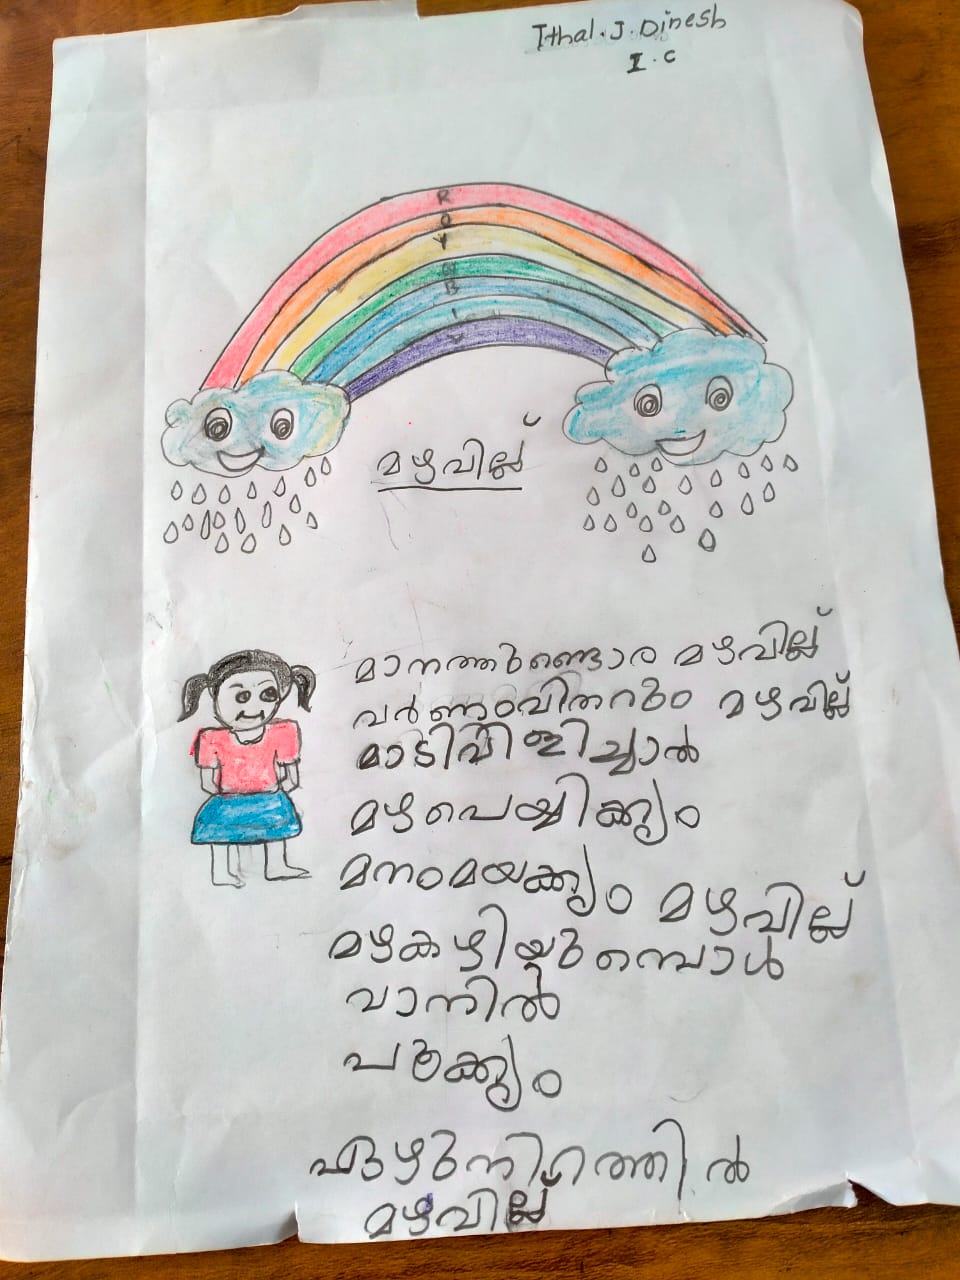 Ithal.J.Dinesh
I.C
R
O
Y
G
B
I
V
മഴവില്ല്
മാനത്തുണ്ടൊര മഴവില്ല്
വർണ്ണംവിതറും മഴവില്ല്
മാടിവിളിച്ചാൽ
മഴപെയ്യിക്കും
മനംമയക്കും മഴവില്ല്
മഴകഴിയുമ്പൊൾ
വാനിൽ
പരക്കും
ഏഴുനിറത്തിൽ
മഴവില്ല്